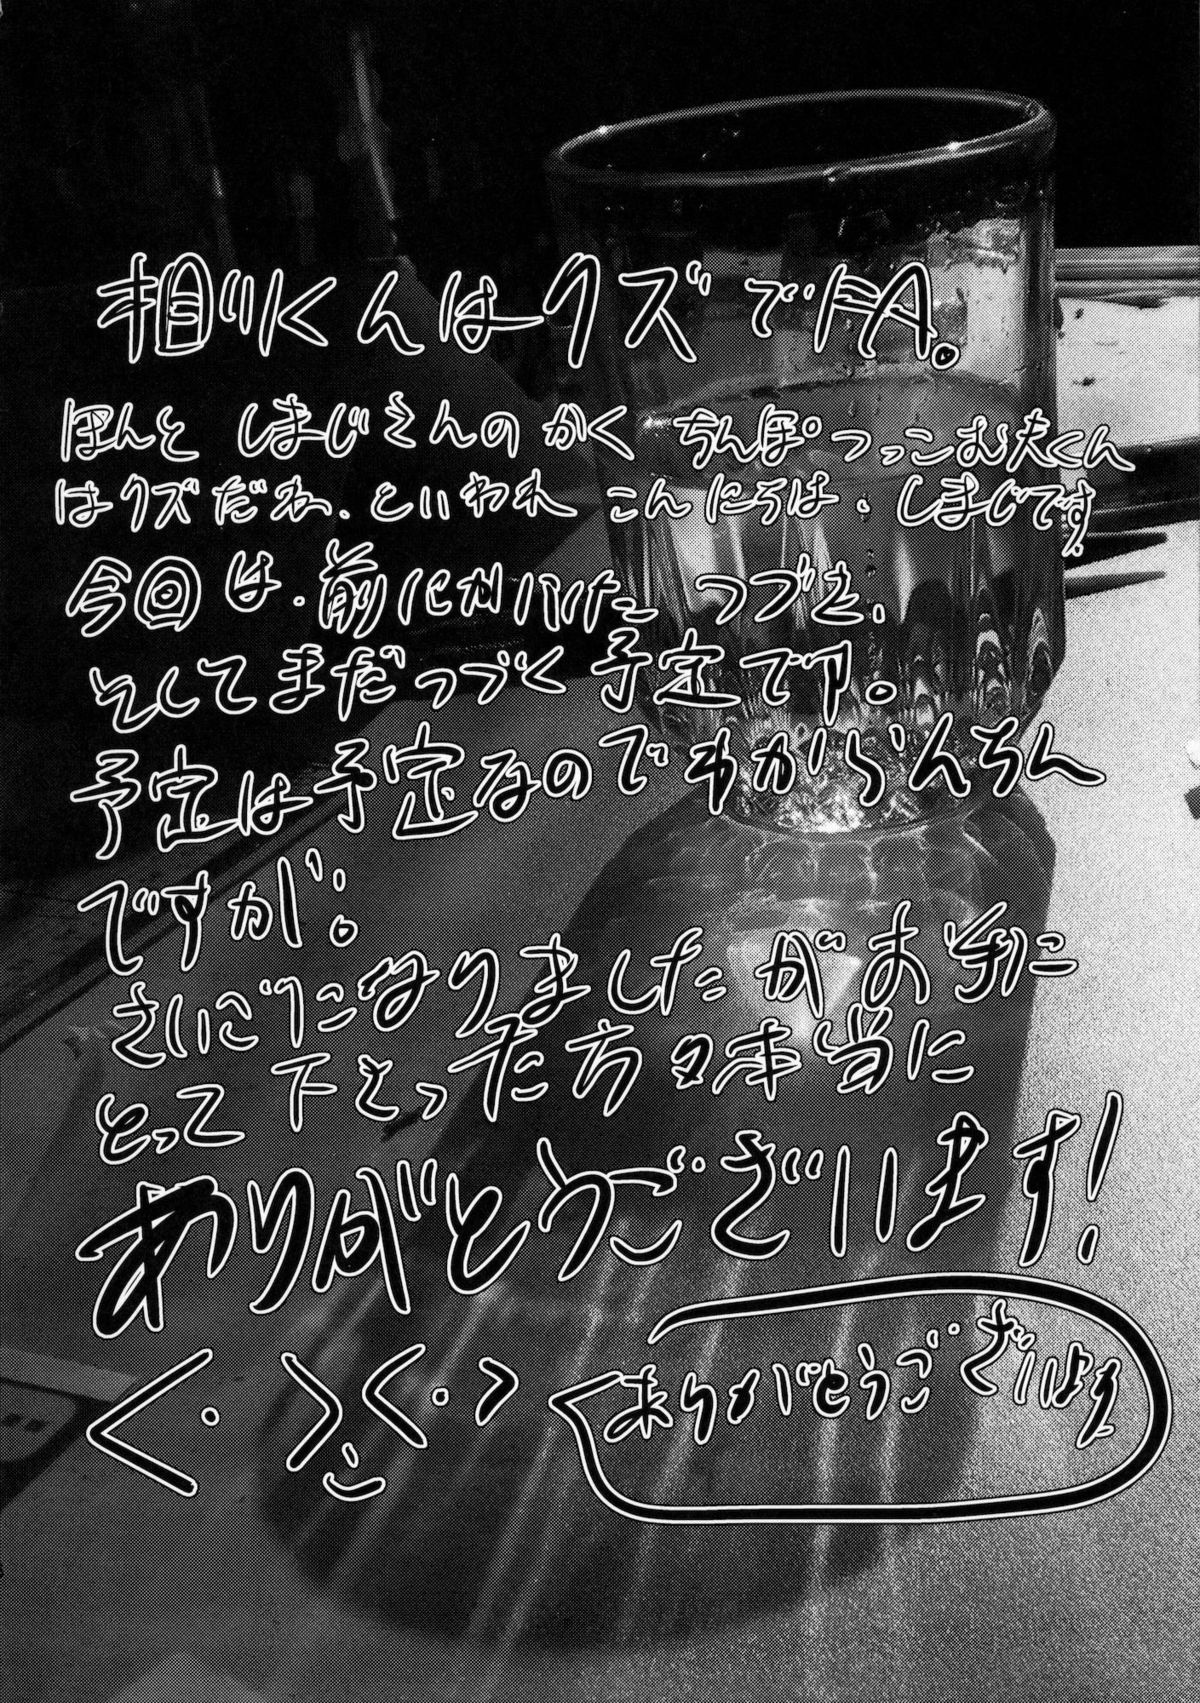 相川くんはクズでFA。
ほんと しまじさんのかく ちんぽつっこむ夫くん
はクズだね、といわれ こんにちは、しまじです
今回は、前にかいた つづき、
そしてまだつづく予定です。
予定は予定なのでわからんちん
ですが。
さいごになりましたがお手に
とって下さった方々本当に
ありがとうございます!
<・ >こ<・>
ありがとうございまぁ